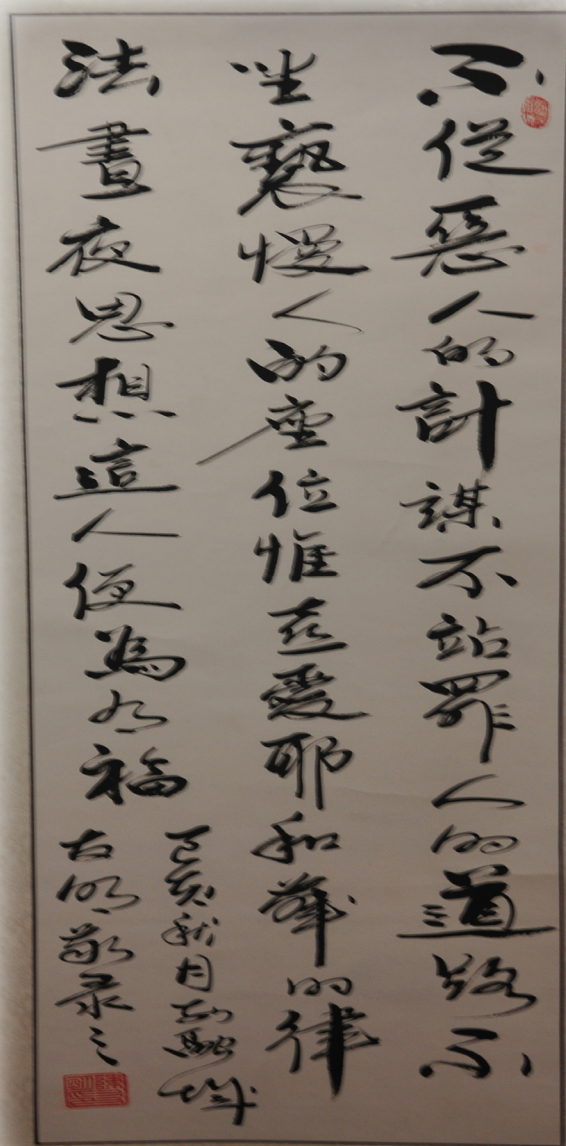 不從惡人的計謀不站罪人的道路不
坐褻慢人的座位惟喜愛耶和華的律
法晝夜思想這人便為有福
己亥秋月融城
明敬录之